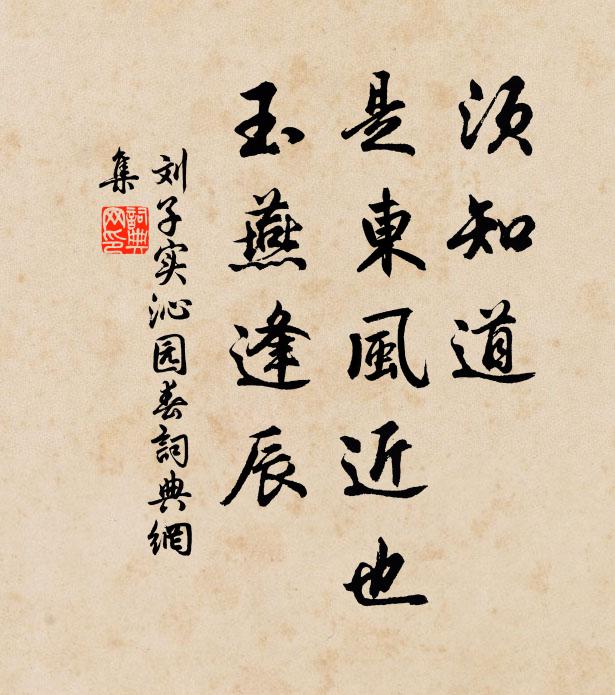 须知道
是東風近也
玉燕逢辰
刘子实沁园春詞典網
集
詞典
网印